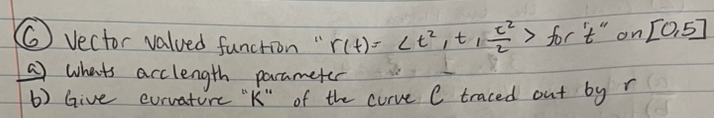 ⑥ Vector valued function "r(t)= <t², t, t²/2> for "t" on [0,5]
a) whats arclength parameter
b) Give curvature "K" of the curve C traced out by r